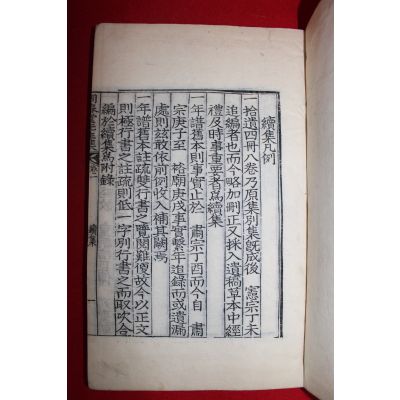 續集凡例
一拾遺四冊八卷乃原集別集旣成後 憲宗丁未
追編者也而今略加刪正又採入遺稿草本中經
禮及時事重要者爲續集
一年譜舊本則事實止於 肅宗丁酉而今自 肅
宗庚子至 哲廟庚戌事實繫年追錄而或遺漏
處則玆敢依前例收入補其闕焉
一年譜舊本註疏雙行書之覽閱難便故今以正文
則極行書之註疏則低一字別行書之而取以合
編於續集爲附錄
續集
一